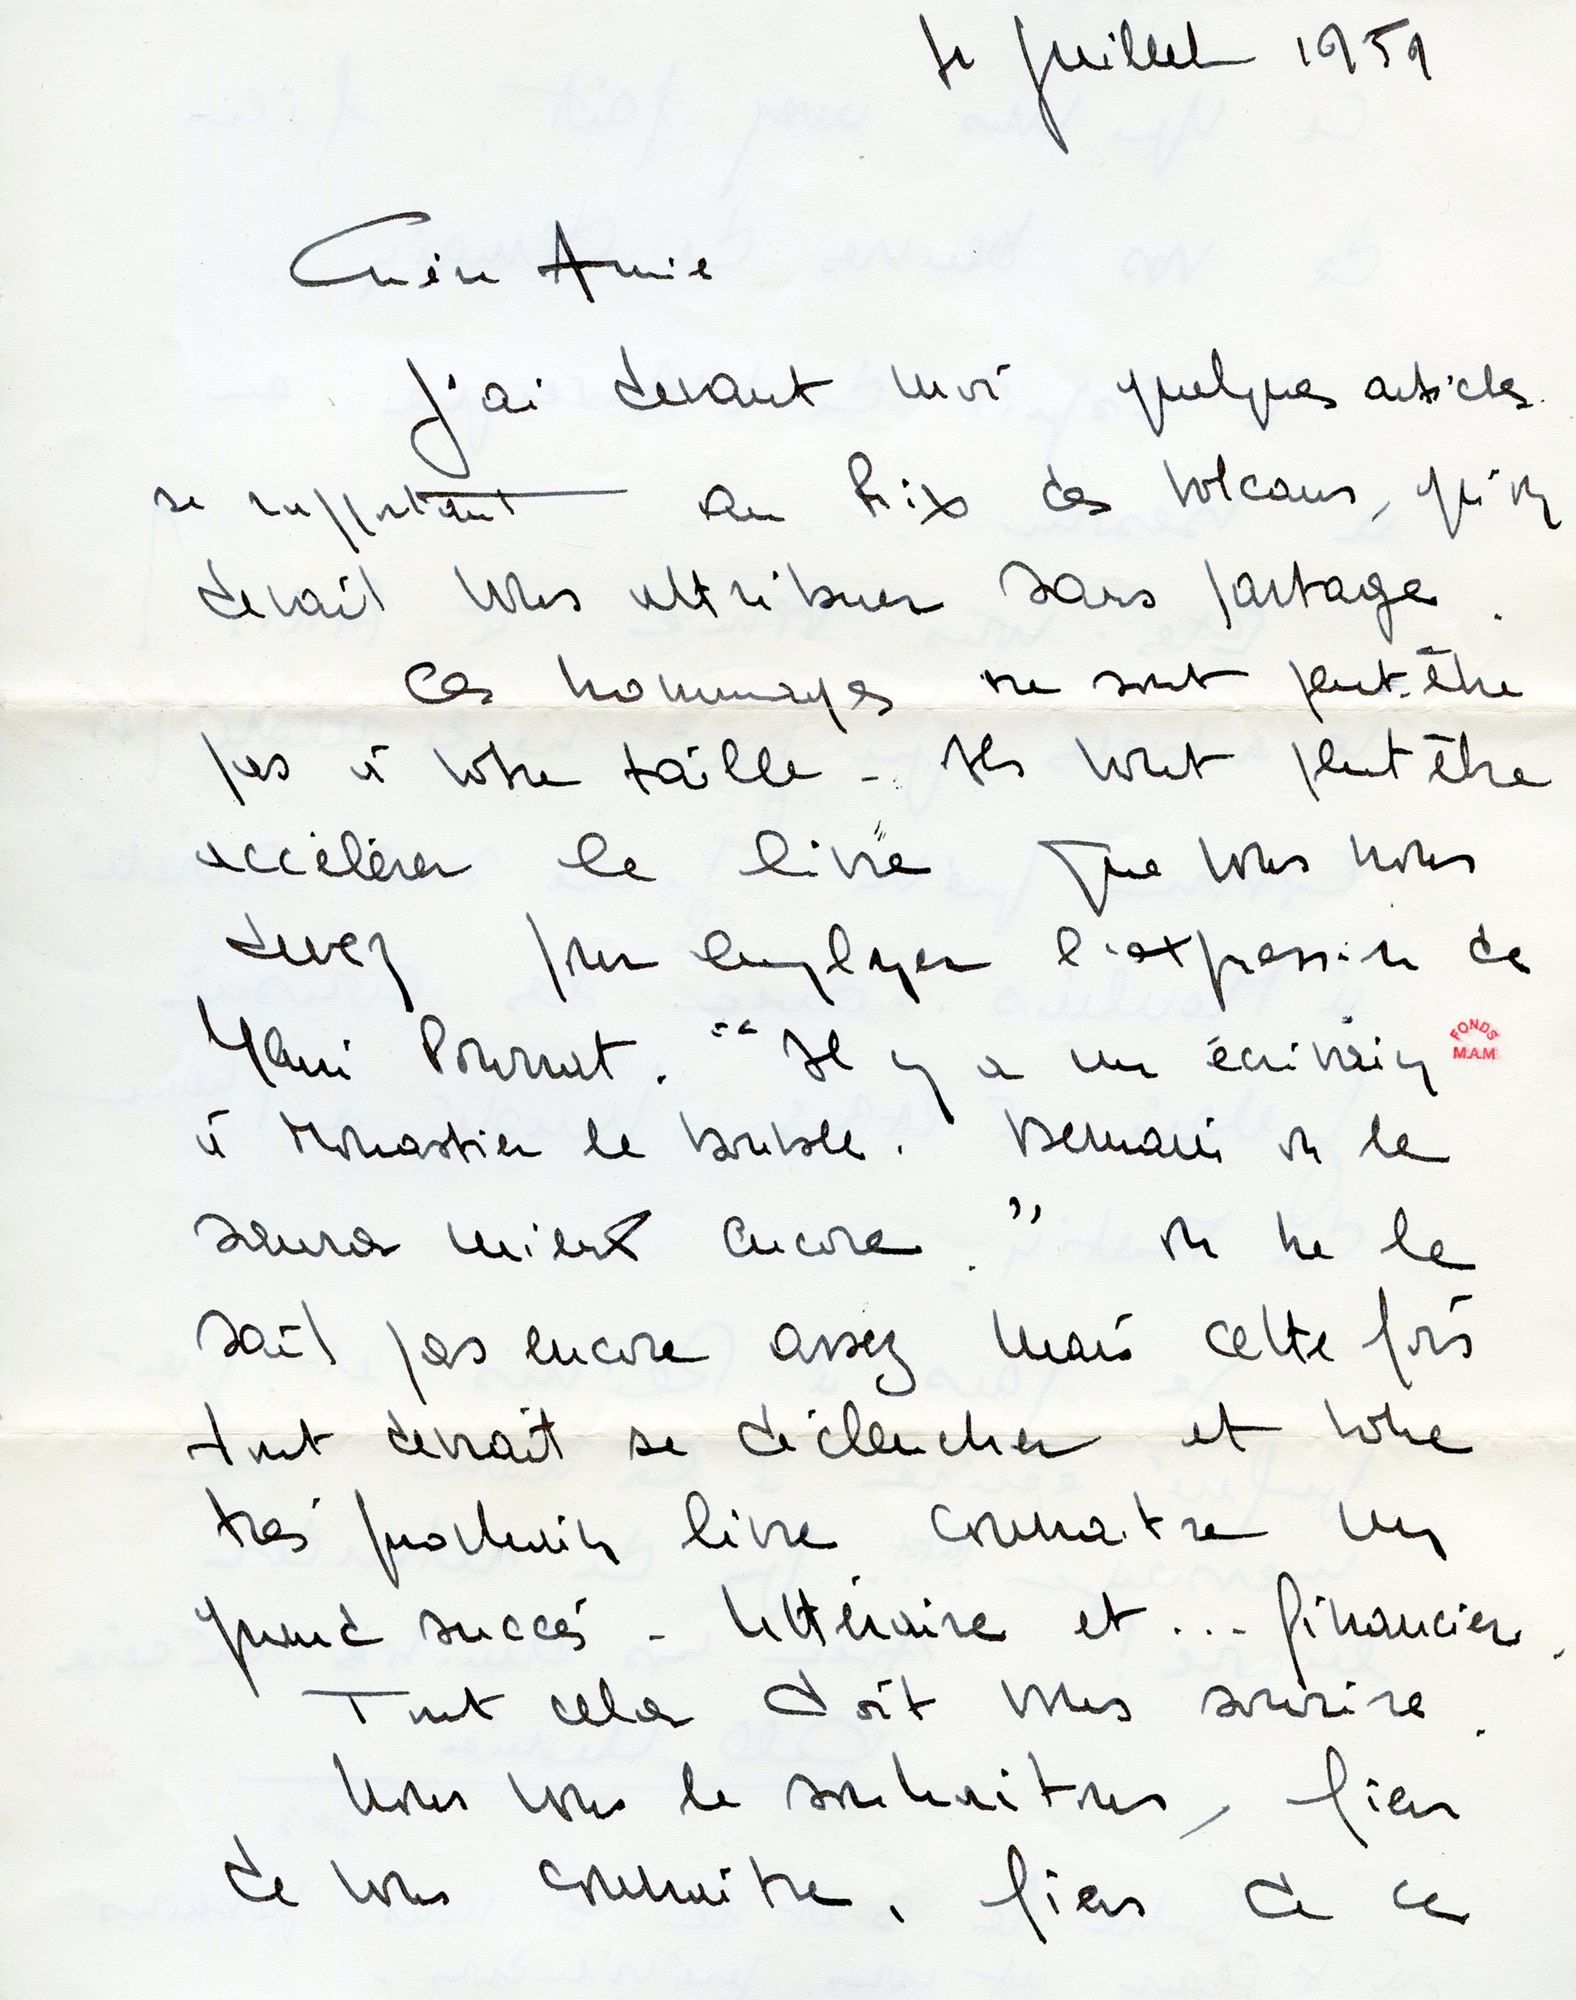 juillet 1959
Chère Amie
J'ai devant moi quelques articles
se rapportant au Prix des Volcans, qu'on
devait vous attribuer sans partage.
Ces hommages ne sont peut-être
pas à votre taille - Ils vont peut être
accélérer le livre que vous nous
devez pour employer l'expression de
Pourrat. "Il y a un écrivain
à Monastier le sait. Demain on le
saura mieux encore." On ne le
sait pas encore assez mais cette fois
tout devrait se déclencher et votre
très prochain livre connaitre un
grand succès - littéraire et ... financier.
Tout cela doit vous sourire.
Nous vous le souhaitons, fiers
de vous connaitre, fiers de ce
FONDS
M.A.M